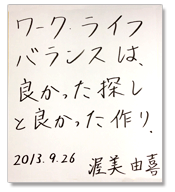 ワーク・ライフ
バランスは、
良かった探し
と良かった作り.
2013.9.26 渥美由喜